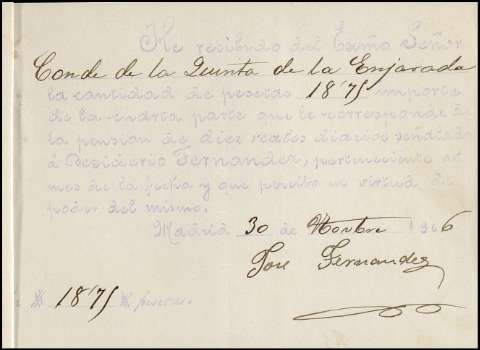 He recibido del Exmo Señor
Conde de la Quinta de la Enjarada
la cantidad de pesetas 18'75 importe
de la cuarta parte que le corresponde de
la pension de diez reales diarios señalada
á Desiderio Fernandez, perteneciente al
mes de la fecha y que percibo en virtud de
poder del mismo.
Madrid 30 de Nbre 1906
José Fernandez
18'75 pesetas.